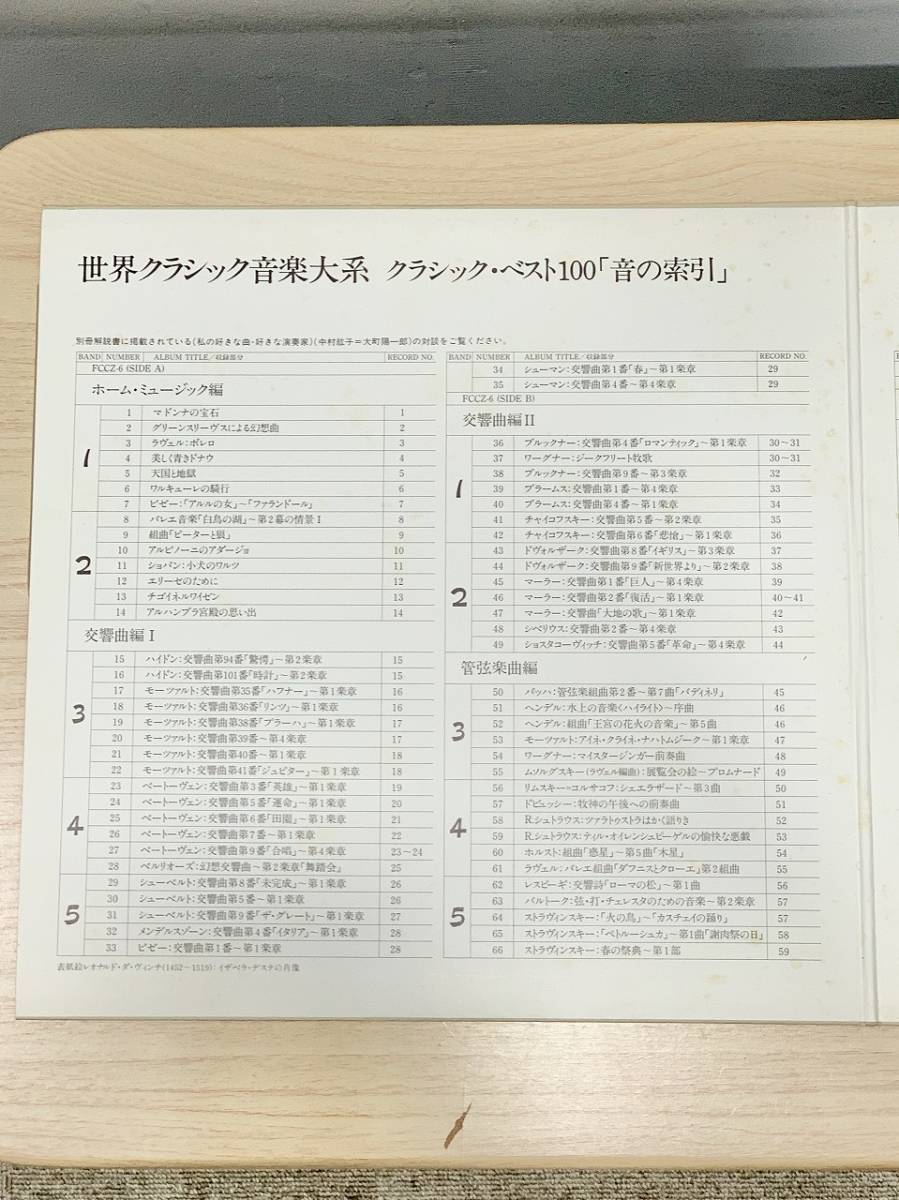 世界クラシック音楽大系 クラシック・ベスト100「音の索引」
別冊解説書に掲載されている〈私の好きな曲・好きな演奏家〉(中村紘子=大町陽一郎)の対談をご覧ください。
BAND NUMBER ALBUM TITLE/収録部分 RECORD NO.
FCCZ-6 (SIDE A)
ホーム・ミュージック編
1
1 マドンナの宝石 1
2 グリーンスリーヴスによる幻想曲 2
3 ラヴェル:ボレロ 3
4 美しく青きドナウ 4
5 天国と地獄 5
6 ワルキューレの騎行 6
7 ビゼー:「アルルの女」~「ファランドール」 7
2
8 バレエ音楽「白鳥の湖」~第2幕の情景I 8
9 組曲「ピーターと狼」 9
10 アルビノーニのアダージョ 10
11 ショパン:小犬のワルツ 11
12 エリーゼのために 12
13 チゴイネルワイゼン 13
14 アルハンブラ宮殿の思い出 14
交響曲編I
3
15 ハイドン:交響曲第94番「驚愕」~第2楽章 15
16 ハイドン:交響曲第101番「時計」~第2楽章 15
17 モーツァルト:交響曲第35番「ハフナー」~第1楽章 16
18 モーツァルト:交響曲第36番「リンツ」~第1楽章 16
19 モーツァルト:交響曲第38番「プラーハ」~第1楽章 17
20 モーツァルト:交響曲第39番~第4楽章 17
21 モーツァルト:交響曲第40番~第1楽章 18
22 モーツァルト:交響曲第41番「ジュピター」~第1楽章 18
4
23 ベートーヴェン:交響曲第3番「英雄」~第1楽章 19
24 ベートーヴェン:交響曲第5番「運命」~第1楽章 20
25 ベートーヴェン:交響曲第6番「田園」~第1楽章 21
26 ベートーヴェン:交響曲第7番~第1楽章 22
27 ベートーヴェン:交響曲第9番「合唱」~第4楽章 23~24
28 ベルリオーズ:幻想交響曲~第2楽章「舞踏会」 25
5
29 シューベルト:交響曲第8番「未完成」~第1楽章 26
30 シューベルト:交響曲第5番~第1楽章 26
31 シューベルト:交響曲第9番「ザ・グレート」~第1楽章 27
32 メンデルスゾーン:交響曲第4番「イタリア」~第1楽章 28
33 ビゼー:交響曲第1番~第1楽章 28
表紙絵レオナルド・ダ・ヴィンチ(1452~1519):イザベラ・デステの肖像
BAND NUMBER ALBUM TITLE/収録部分 RECORD NO.
34 シューマン:交響曲第1番「春」~第1楽章 29
35 シューマン:交響曲第4番~第4楽章 29
FCCZ-6 (SIDE B)
交響曲編II
1
36 ブルックナー:交響曲第4番「ロマンティック」~第1楽章 30~31
37 ワーグナー:ジークフリート牧歌 30~31
38 ブルックナー:交響曲第9番~第3楽章 32
39 ブラームス:交響曲第1番~第4楽章 33
40 ブラームス:交響曲第4番~第1楽章 34
41 チャイコフスキー:交響曲第5番~第2楽章 35
42 チャイコフスキー:交響曲第6番「悲愴」~第1楽章 36
2
43 ドヴォルザーク:交響曲第8番「イギリス」~第3楽章 37
44 ドヴォルザーク:交響曲第9番「新世界より」~第2楽章 38
45 マーラー:交響曲第1番「巨人」~第4楽章 39
46 マーラー:交響曲第2番「復活」~第1楽章 40~41
47 マーラー:交響曲「大地の歌」~第1楽章 42
48 シベリウス:交響曲第2番~第4楽章 43
49 ショスタコーヴィッチ:交響曲第5番「革命」~第4楽章 44
管弦楽曲編
3
50 バッハ:管弦楽組曲第2番~第7曲「バディネリ」 45
51 ヘンデル:水上の音楽〈ハイライト〉~序曲 46
52 ヘンデル:組曲「王宮の花火の音楽」~第5曲 46
53 モーツァルト:アイネ・クライネ・ナハトムジーク~第1楽章 47
54 ワーグナー:マイスタージンガー前奏曲 48
55 ムソルグスキー(ラヴェル編曲):展覧会の絵~プロムナード 49
4
56 リムスキー=コルサコフ:シェエラザード~第3曲 50
57 ドビュッシー:牧神の午後への前奏曲 51
58 R.シュトラウス:ツァラトゥストラはかく語りき 52
59 R.シュトラウス:ティル・オイレンシュピーゲルの愉快な悪戯 53
60 ホルスト:組曲「惑星」~第5曲「木星」 54
61 ラヴェル:バレエ組曲「ダフニスとクローエ」第2組曲 55
5
62 レスピーギ:交響詩「ローマの松」~第1曲 56
63 バルトーク:弦・打・チェレスタのための音楽~第2楽章 57
64 ストラヴィンスキー:「火の鳥」~「カスチェイの踊り」 57
65 ストラヴィンスキー:「ペトルーシュカ」~第1曲「謝肉祭の日」 58
66 ストラヴィンスキー:春の祭典~第1部 59